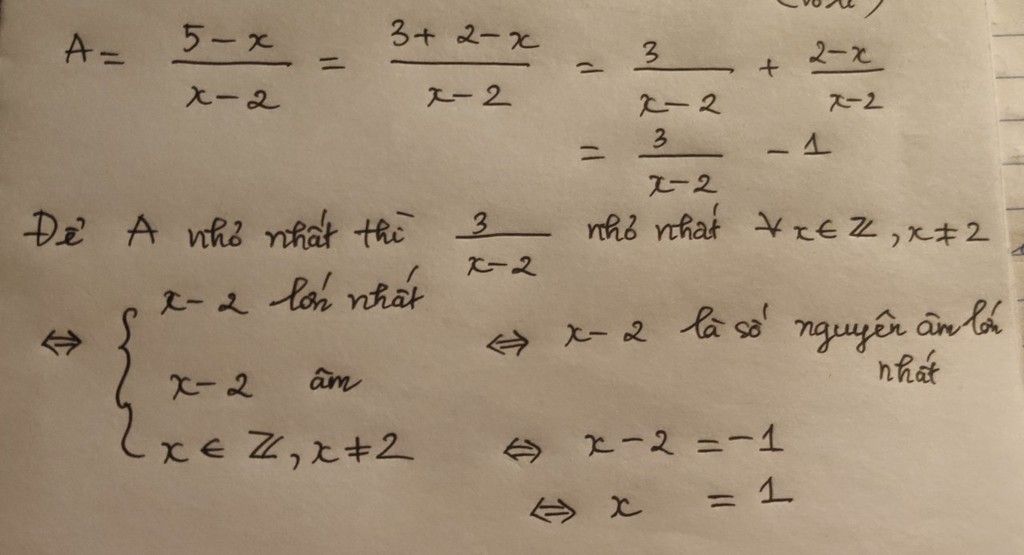 A = \frac{5-x}{x-2} = \frac{3+2-x}{x-2} = \frac{3}{x-2} + \frac{2-x}{x-2}
= \frac{3}{x-2} - 1
Để A nhỏ nhất thì \frac{3}{x-2} nhỏ nhất ∀ x ∈ ℤ, x ≠ 2
⇔ { x-2 lớn nhất
x-2 âm
x ∈ ℤ, x ≠ 2
⇔ x-2 là số nguyên âm lớn
nhất
⇔ x-2 = -1
⇔ x = 1